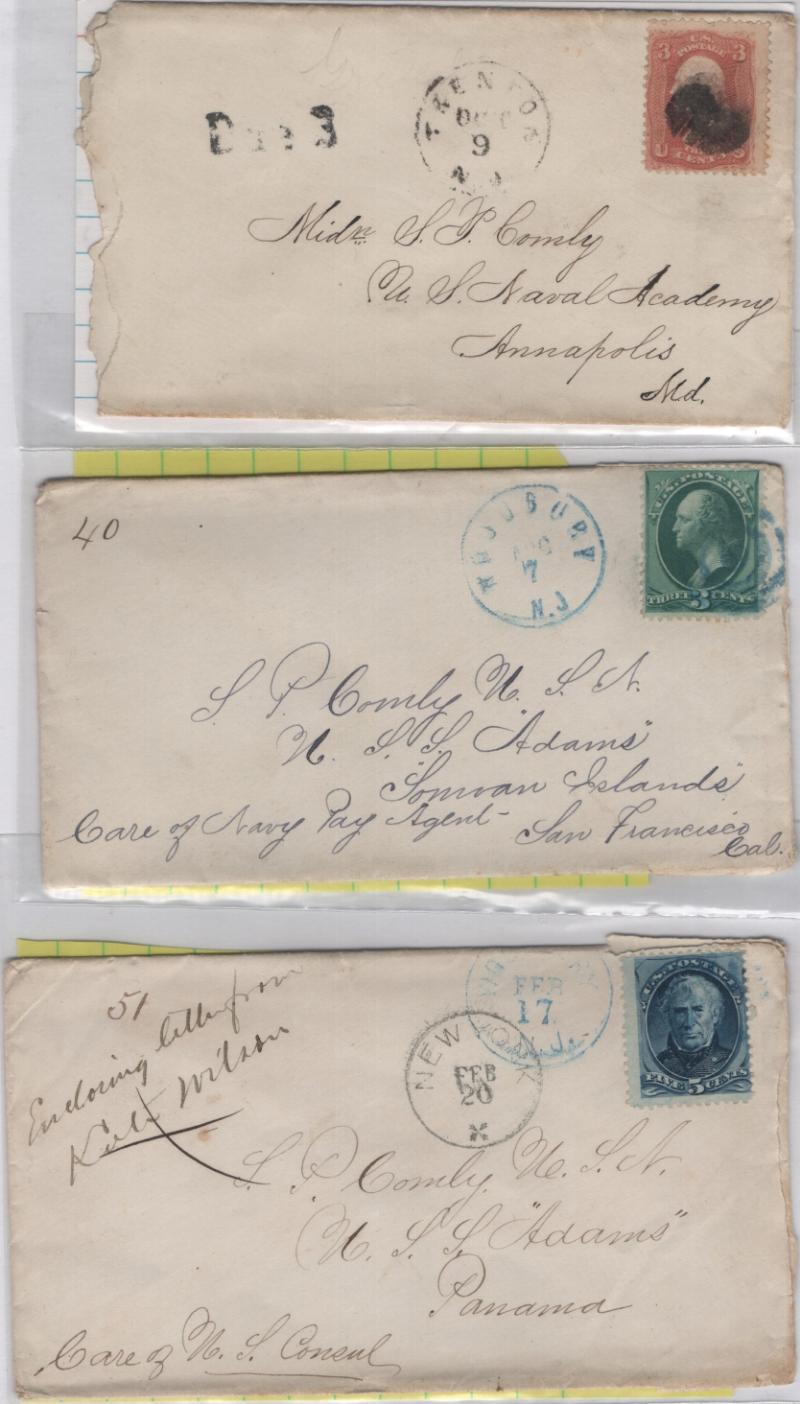 Due 3
TRENTON
9
N.J.
3 U.S. POSTAGE 3
U CENTS S
Midn S. P. Comly
U. S. Naval Academy
Annapolis
Md.
40
WOODBURY
AUG
7
N.J
U.S. POSTAGE
THREE 3 CENTS
S P Comly U. S. N.
U. S. S. "Adams"
"Somoan Islands"
Care of Navy Pay Agent -
San Francisco
Cal.
51
Enclosing letter from
Kate Wilson
FEB
17
N.J.
NEW YORK
FEB
20
U.S. POSTAGE
FIVE 5 CENTS
S. P. Comly U. S. N.
U. S. S. "Adams"
Panama
Care of U. S. Consul